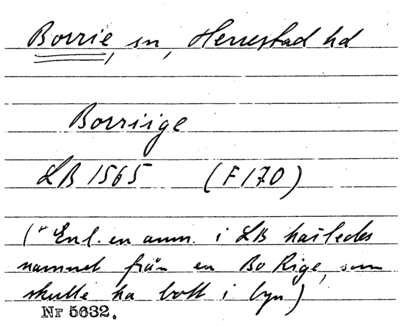 Borrie, sn, Herrestad hd
Borriige
LB 1565 (F 170)
(" Enl. en anm. i LB härledes
namnet från en Bo Rige, som
skulle ha bott i byn)
Nr 5632.